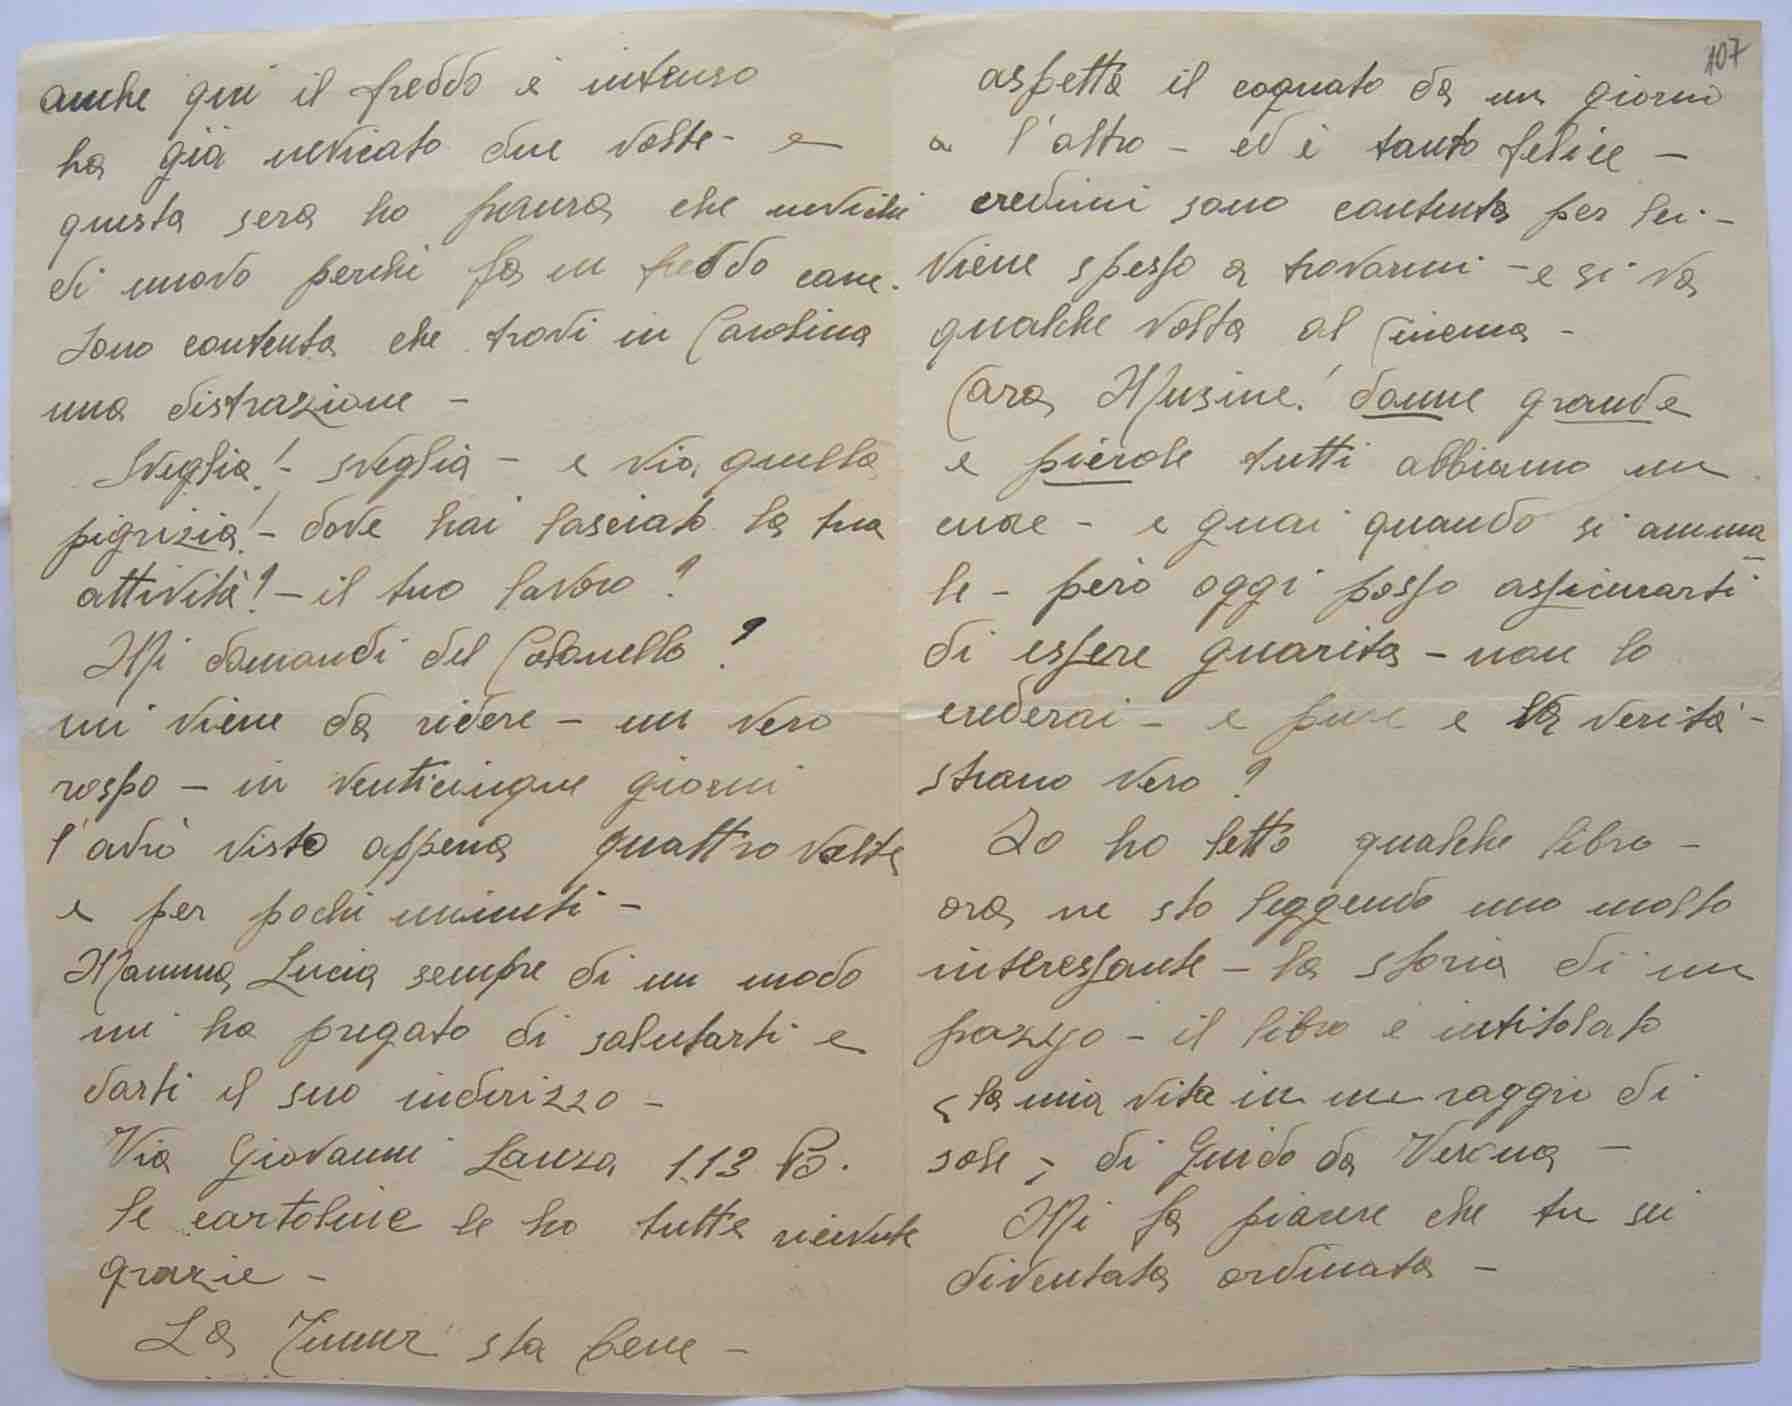 anche qui il freddo è intenso
ha già nevicato due volte - e
questa sera ho paura che nevichi
di nuovo perchè fa un freddo cane.
Sono contenta che trovi in Carolina
una distrazione -
Sveglia! - sveglia - e via quella
pigrizia! - dove hai lasciato la tua
attività? - il tuo lavoro?
Mi domandi del Colonnello?
mi viene da ridere - un vero
rospo - in venticinque giorni
l'avrò visto appena quattro volte
e per pochi minuti -
Mamma Lucia sempre di un modo
mi ha pregato di salutarti e
darti il suo inderizzo -
Via Giovanni Lanza 113 B.
le cartoline le ho tutte ricevute
grazie -
La sta bene -
107
aspetta il cognato da un giorno
a l'altro - ed è tanto felice -
credimi sono contenta per lei -
Viene spesso a trovarmi - e si va
qualche volta al Cinema -
Cara Musine! donne grande
e picole tutti abbiamo un
cuore - e guai quando si amma
le - però oggi posso assicurarti
di essere guarita - non lo
crederai - e pure e la verità -
strano vero?
Io ho letto qualche libro -
ora ne sto leggendo uno molto
interessante - la storia di un
pazzo - il libro è intitolato
"la mia vita in un raggio di
sole", di Guido da Verona -
Mi fa piacere che tu sei
diventata ordinata -